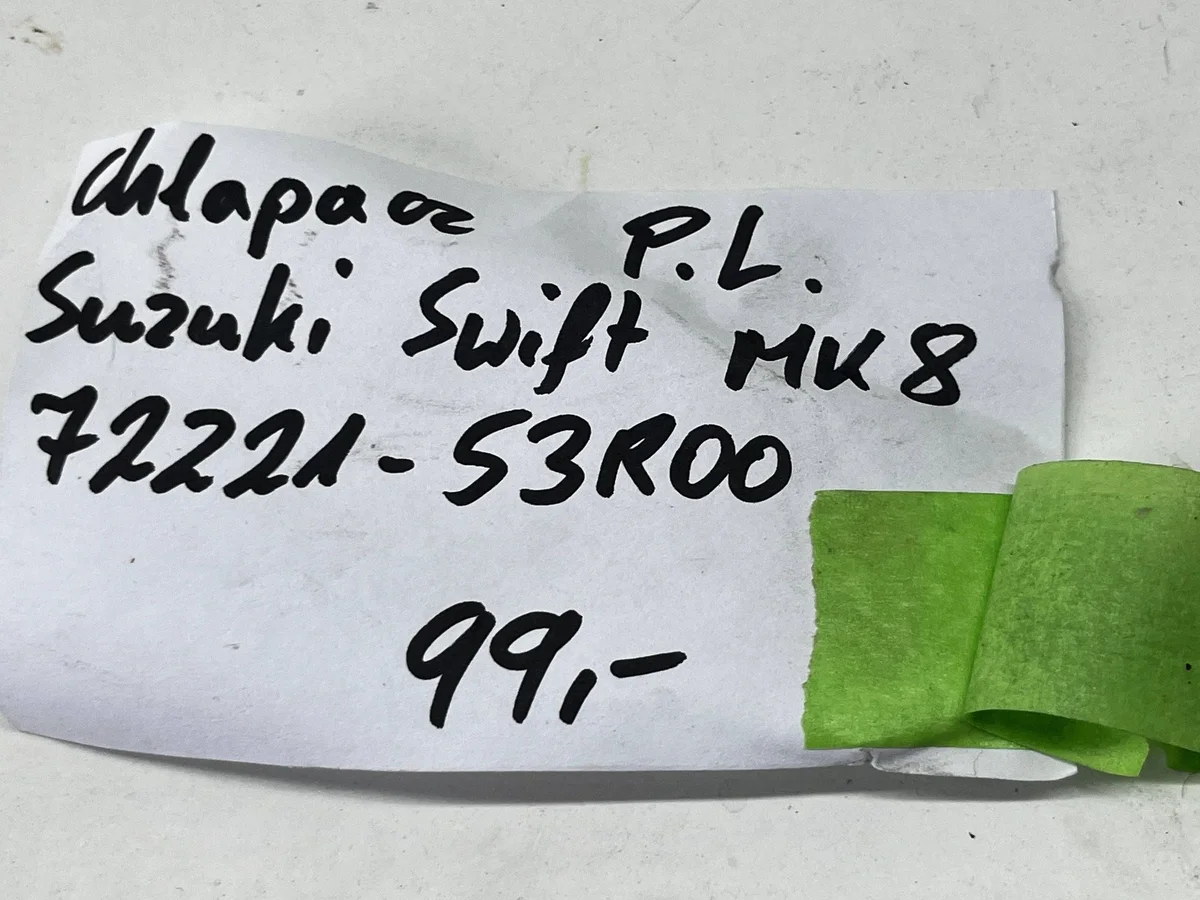 chlapacz P.L.
Suzuki Swift MK8
72221-53R00
99,-